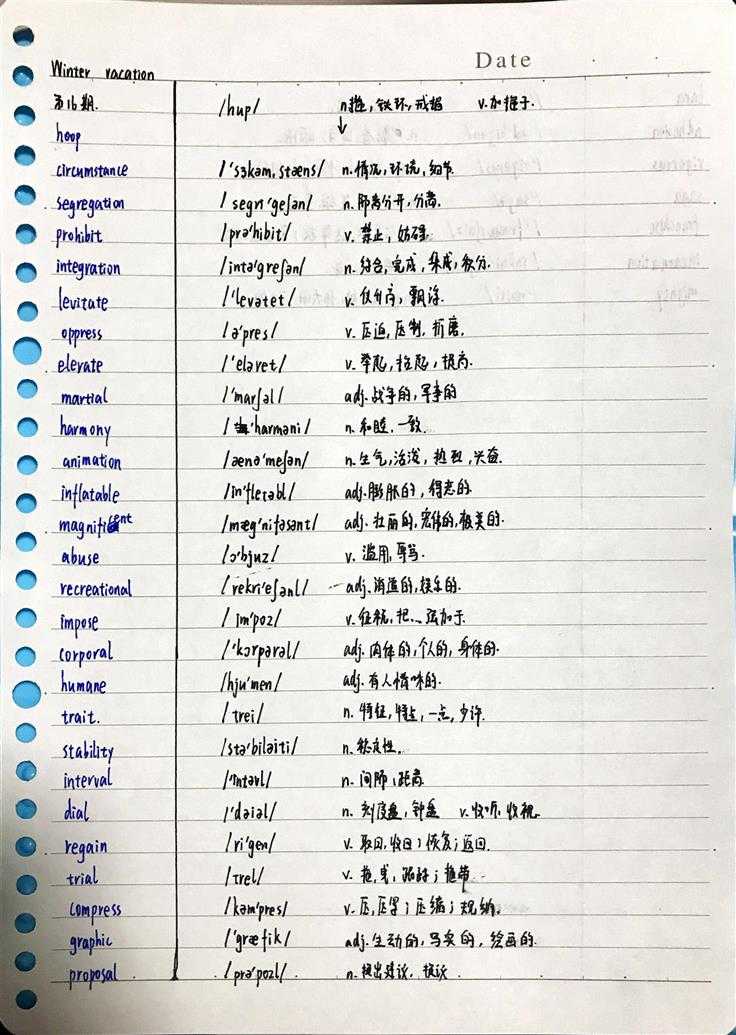 Date
Winter vacation
第16期. /hup/ n.箍,铁环,戒指 v.加箍于.
hoop
circumstance /'sɜkəm,stæns/ n.情况,环境,细节.
segregation /segrɪ'geʃən/ n.隔离分开,分离.
prohibit /prə'hibit/ v.禁止,妨碍.
integration /intə'greʃən/ n.结合,完成,集成,积分.
levitate /'levətet/ v.使升高,飘浮.
oppress /ə'pres/ v.压迫,压制,折磨.
elevate /'eləvet/ v.举起,拉起,提高.
martial /'marʃəl/ adj.战争的,军事的
harmony /'harməni/ n.和睦.一致.
animation /ænə'meʃən/ n.生气,活泼,热烈,兴奋.
inflatable /in'fletəbl/ adj.膨胀的,得意的.
magnificent /mæg'nifəsənt/ adj.壮丽的,宏伟的,极美的.
abuse /ɔ'bjuz/ v.滥用,辱骂.
recreational /rekri'eʃənl/ adj.消遣的,娱乐的.
impose /im'poz/ v.征税,把…强加于.
corporal /'kɔrpərəl/ adj.肉体的,个人的,身体的.
humane /hju'men/ adj.有人情味的.
trait. /trei/ n.特征,特点,一点,少许.
stability /stə'biləiti/ n.稳定性.
interval /'ɪntəvl/ n.间隔,距离
dial /'daiəl/ n.刻度盘,钟盘 v.收听,收视.
regain /ri'gen/ v.取回,收回;恢复;返回.
trial /trel/ v.拖,
compress /kəm'pres/ v.压,压紧;压缩;归纳.
graphic /'græfik/ adj.生动的,写实的,绘画的.
proposal /prə'pozl/ n.提出建议,提议